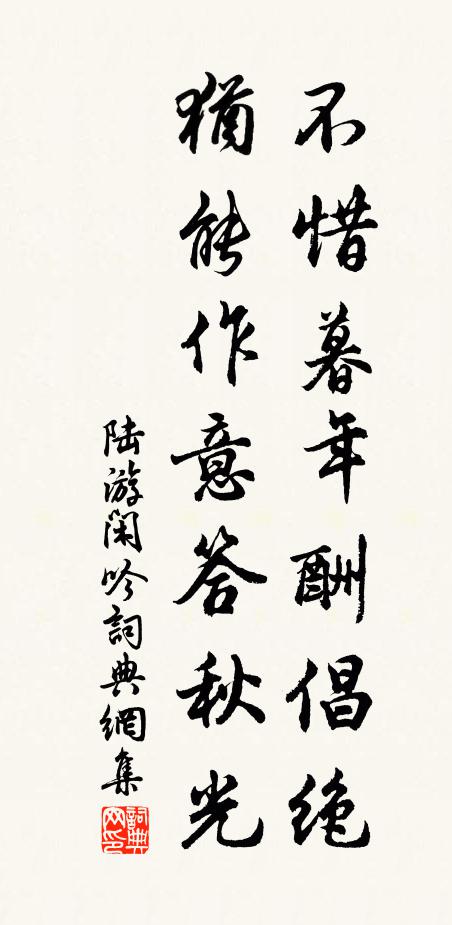 不惜暮年酬倡绝
猶能作意答秋光
陆游闲吟詞典網集
詞典网印